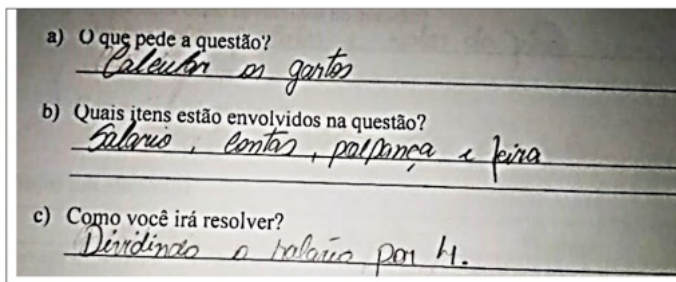 a) O que pede a questão?
Calcular os gastos
b) Quais itens estão envolvidos na questão?
Salario, contas, polpança e feira
c) Como você irá resolver?
Dividindo o salario por 4.